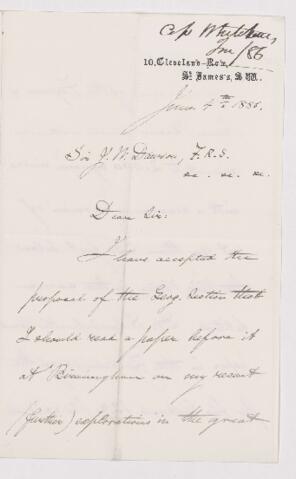 Cop Whitehouse
Jun/86
10, Cleveland-Row,
St. James's, S.W.
June 4th 1886.
Sir J. W. Dawson, F.R.S.
&c. &c. &c.
Dear Sir:
I have accepted the
proposal of the Geog. Section that
I should read a paper before it
at Birmingham on my recent
(further) explorations in the great